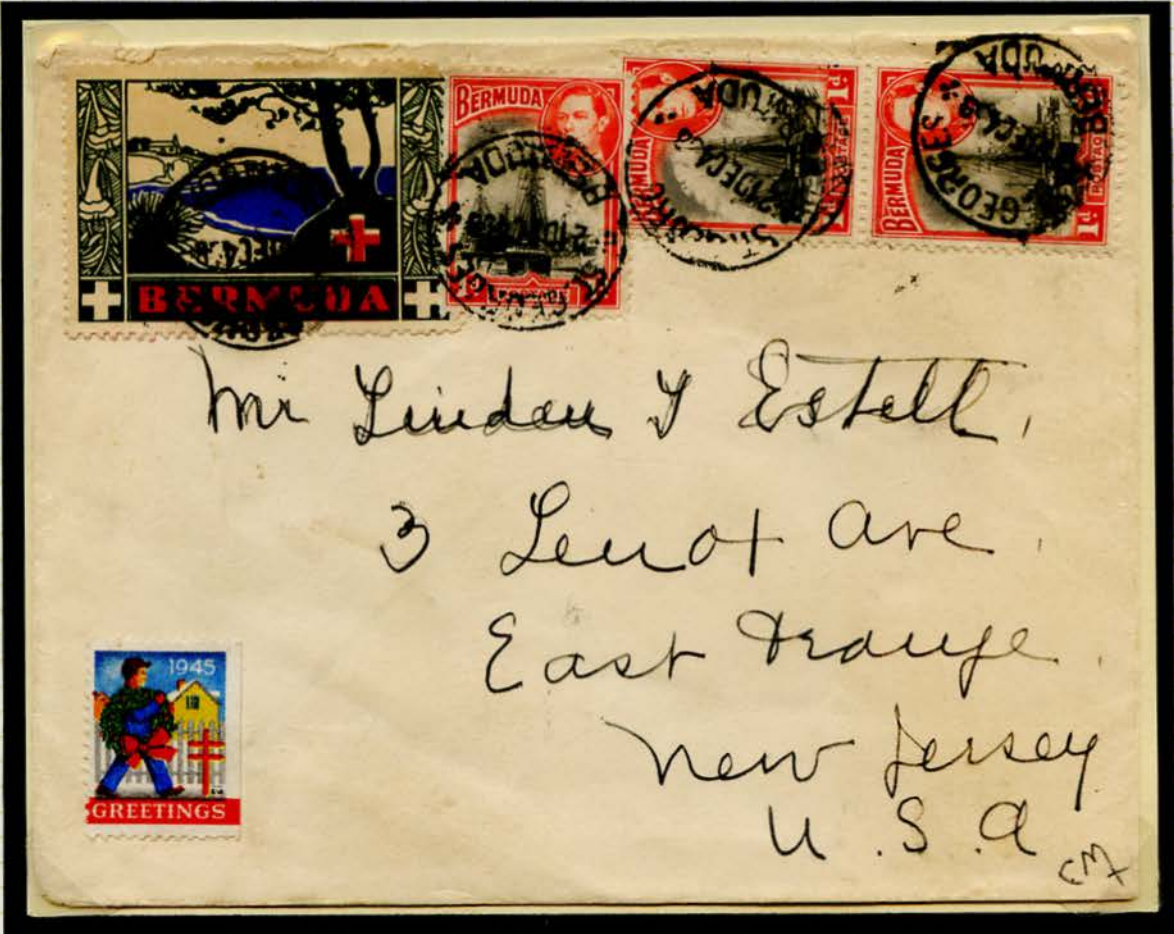 BERMUDA
BERMUDA
BERMUDA
1d
BERMUDA
POSTAGE
1d
ST. GEORGES
BERMUDA
Mr Linden T Estell,
3 Lenox Ave.
East Orange.
New Jersey
U.S.A
CM
1945
GREETINGS